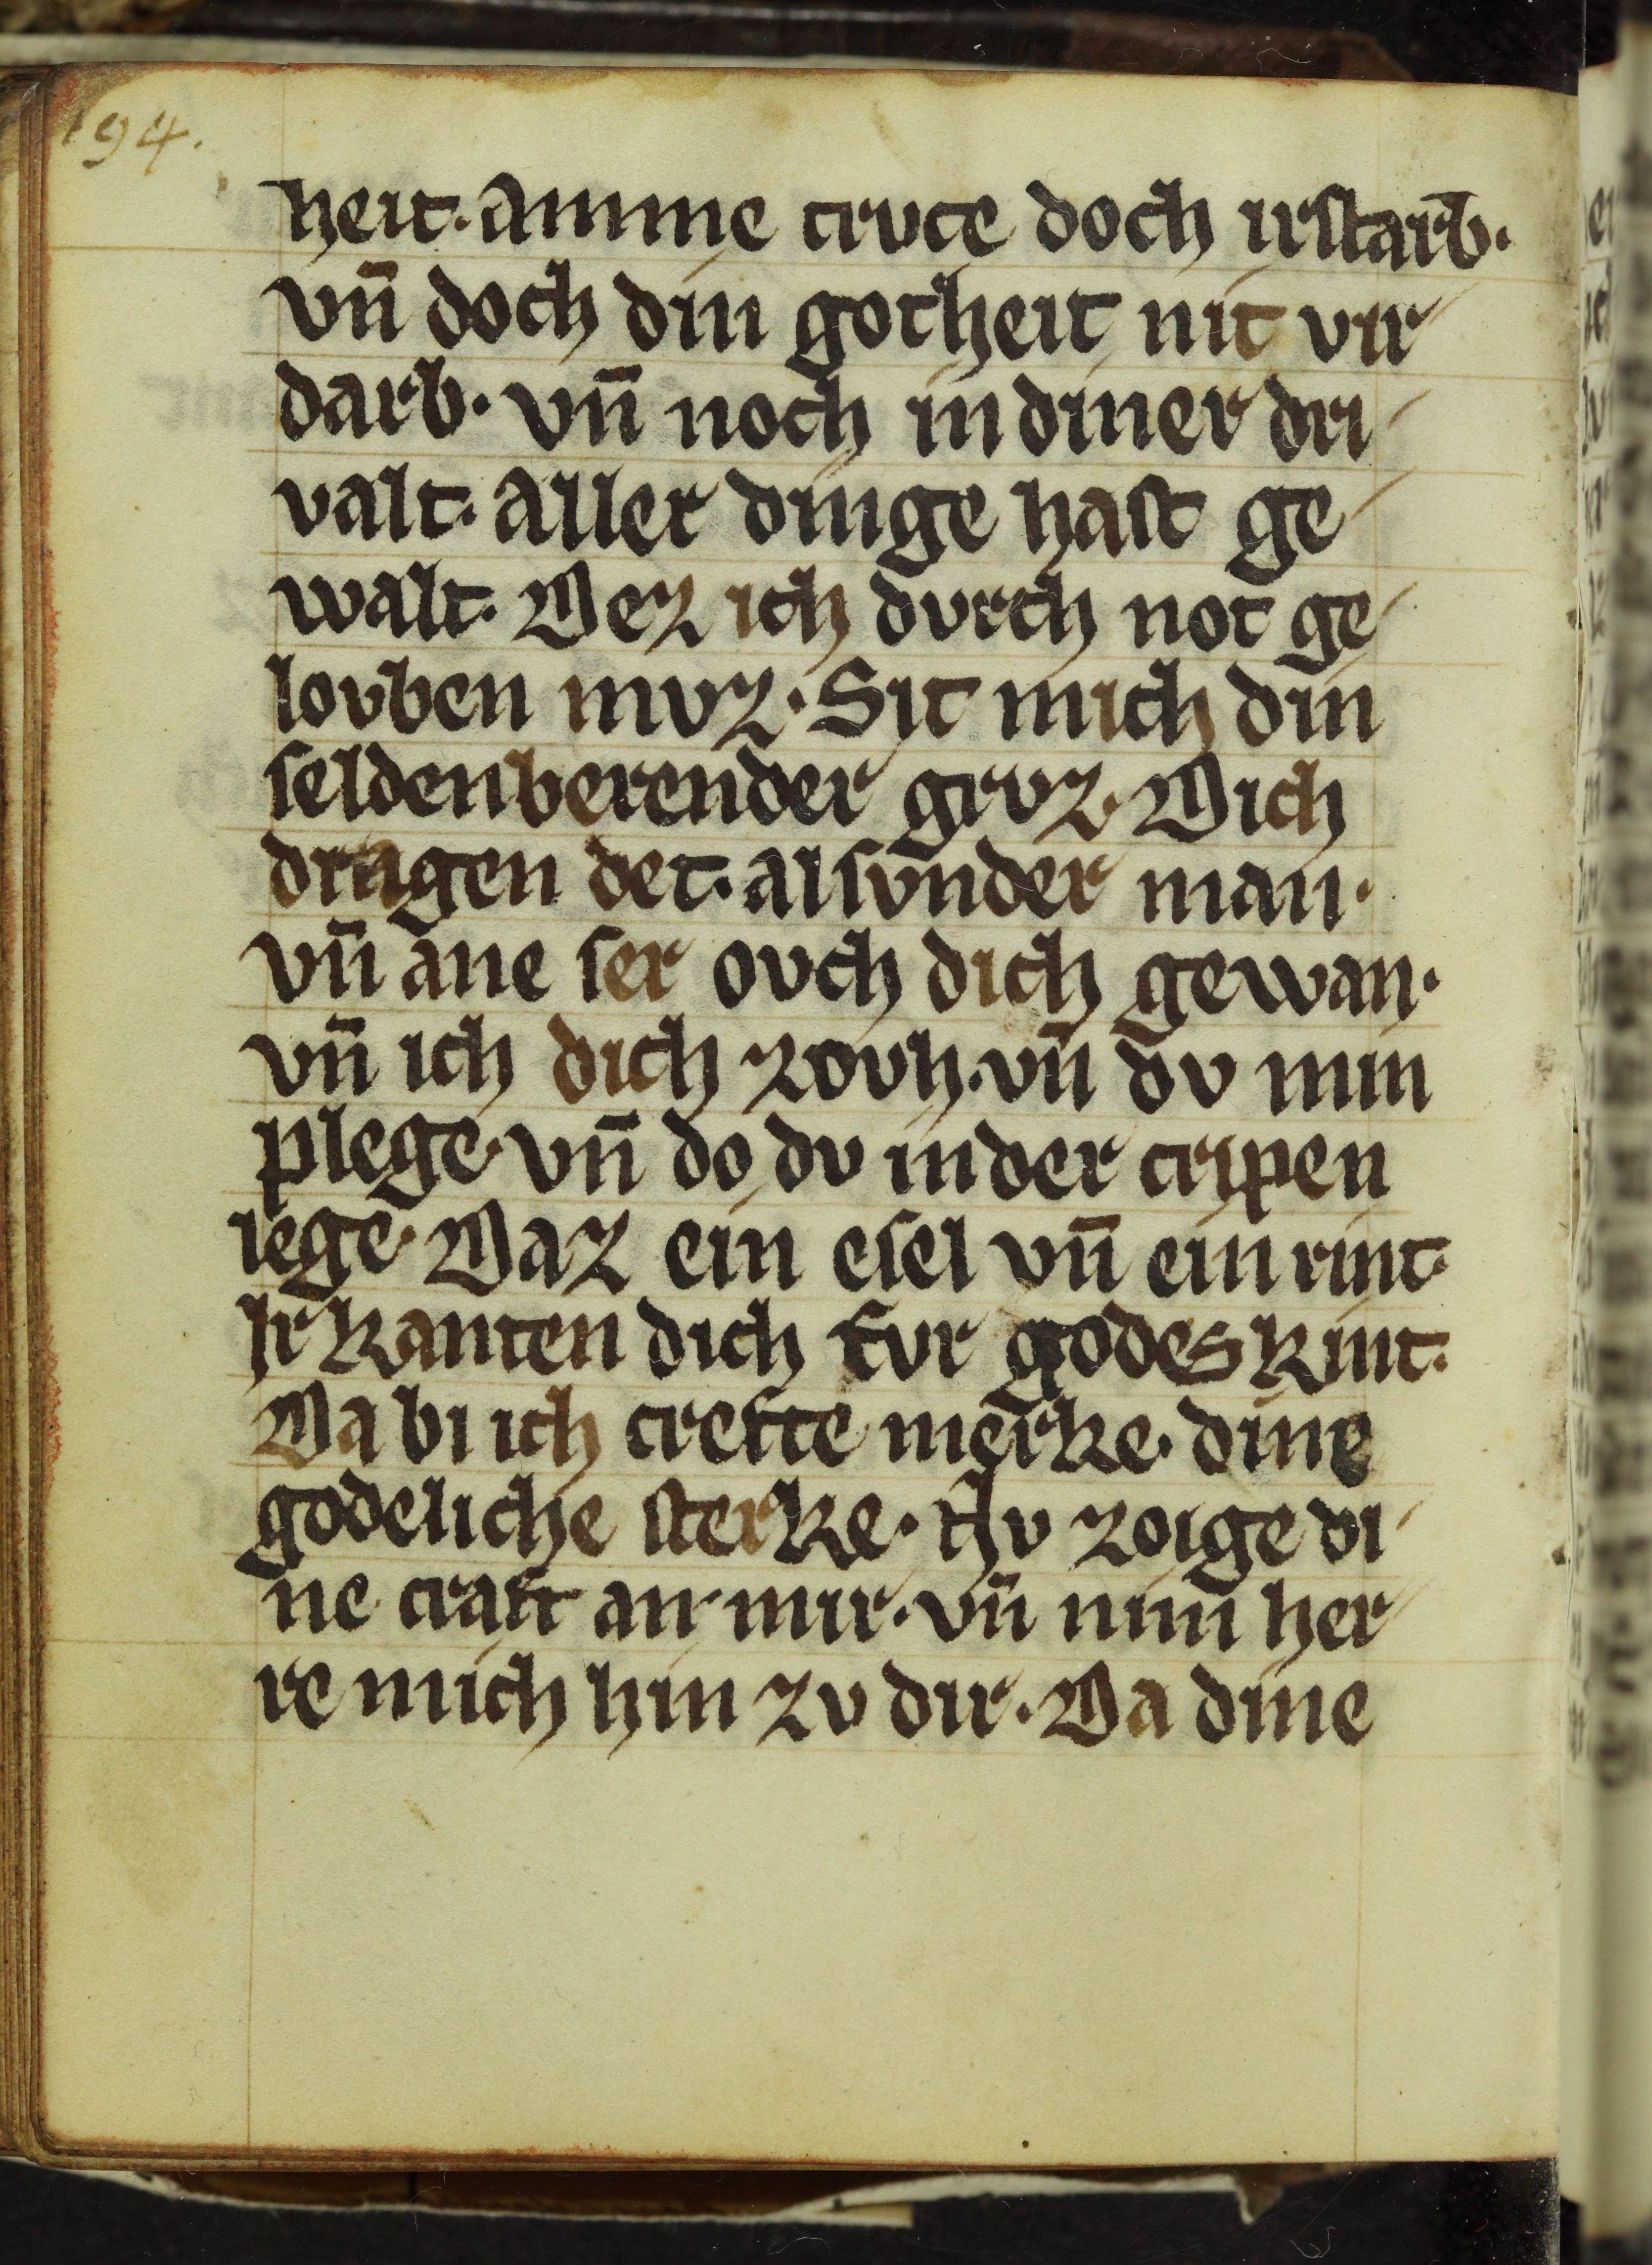 194.
heit. Amme cruce doch irstarb.
vn̄ doch din gotheit nit vir
darb. vn̄ noch in diner dri
valt. Aller dinge hast ge
walt. Dez ich durch not ge
louben mvz. Sit mich din
seldenberender gruz. Dich
dragen det. al sunder man.
vn̄ ane ser ovch dich gewan.
vn̄ ich dich zovh. vn̄ dv min
plege. vn̄ do dv in der cripen
lege. Daz ein esel vn̄ ein rint.
Ir kanten dich fvr godes kint.
Da bi ich crefte merke. dine
godeliche sterke. Nv zoige di
ne craft an mir. vn̄ nim her
re mich hin zv dir. Da dine